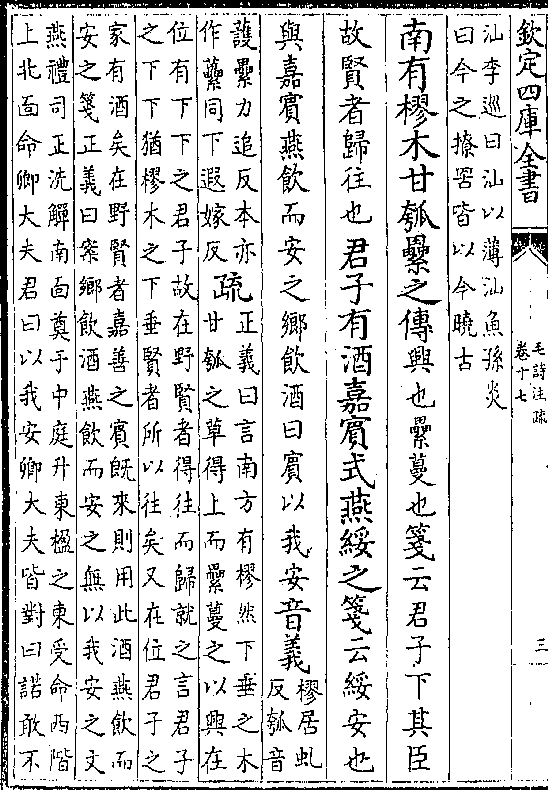 欽定四庫全書
毛詩注疏
卷十七
三
汕李巡曰汕以薄汕魚孫炎
曰今之撩罟皆以今曉古
南有樛木甘瓠纍之傳興也纍蔓也箋云君子下其臣
故賢者歸往也君子有酒嘉賓式燕綏之箋云綏安也
與嘉賓燕飲而安之鄉飲酒曰賓以我安音義
樛居虬
反瓠音
護纍力追反本亦
作虆同下遐嫁反
疏
正義曰言南方有樛然下垂之木
甘瓠之草得上而纍蔓之以興在
位有下下之君子故在野賢者得往而歸就之言君子
之下下猶樛木之下垂賢者所以往矣又在位君子之
家有酒矣在野賢者嘉善之賓既來則用此酒燕飲而
安之箋正義曰案鄉飲酒燕飲而安之無以我安之文
燕禮司正洗觶南面奠于中庭升東楹之東受命西階
上北面命卿大夫君曰以我安卿大夫皆對曰諾敢不